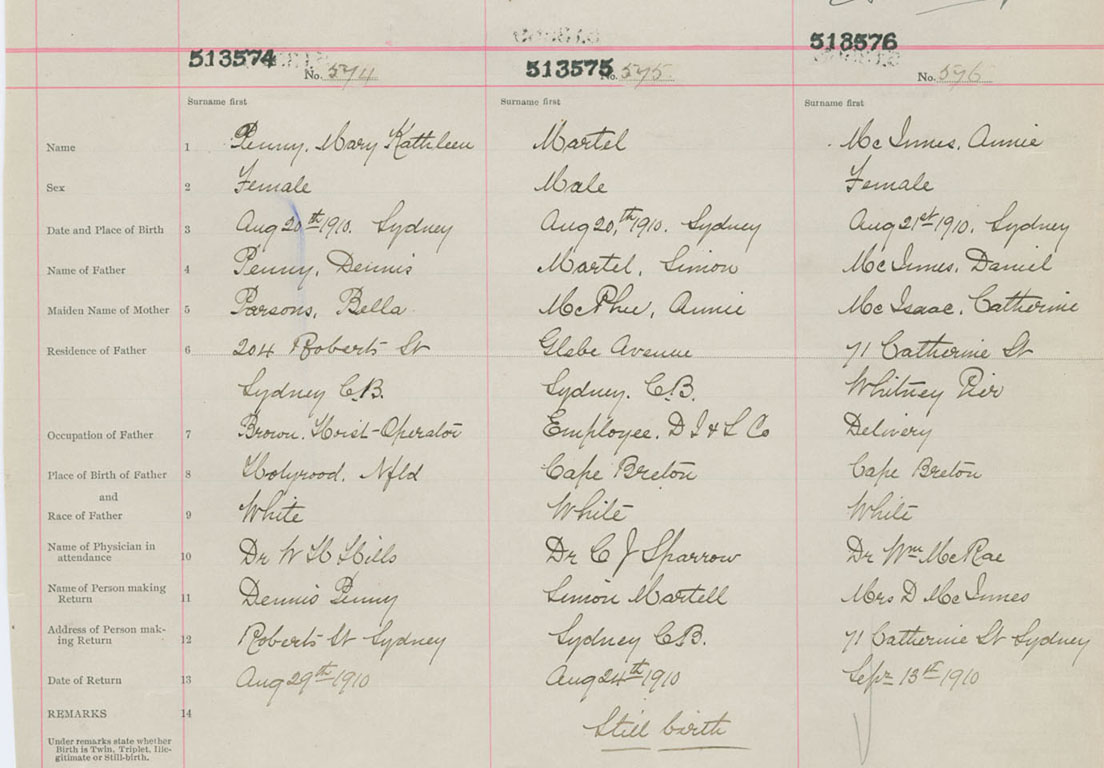 513574 513575 513576
No. 574 No. 575. No. 576
Surname first Surname first Surname first
Name 1 Penny, Mary Kathleen Martel Mc Innes, Annie
Sex 2 Female Male Female
Date and Place of Birth 3 Aug 20th 1910. Sydney Aug 20,th 1910. Sydney Aug 21st 1910, Sydney
Name of Father 4 Penny, Dennis Martel, Simon Mc Innes, Daniel
Maiden Name of Mother 5 Parsons, Bella McPhee, Annie Mc Isaac, Catherine
Residence of Father 6 204 Roberts St Glebe Avenue 71 Catherine St
Sydney C.B. Sydney. C.B. Whitney Pier
Occupation of Father 7 Brown. Hoist-Operator Employee. D I & S Co Delivery
Place of Birth of Father 8 Holyrood. Nfld Cape Breton Cape Breton
and
Race of Father 9 White White White
Name of Physician in
attendance 10 Dr W H Hills Dr C J Sparrow Dr Wm McRae
Name of Person making
Return 11 Dennis Penny Simon Martell Mrs D Mc Innes
Address of Person mak-
ing Return 12 Roberts St Sydney Sydney C.B. 71 Catherine St Sydney
Date of Return 13 Aug 29th 1910 Aug 24th 1910 Sept 13th 1910
REMARKS 14 Still birth
Under remarks state whether
Birth is Twin, Triplet, Ille-
gitimate or Still-birth.